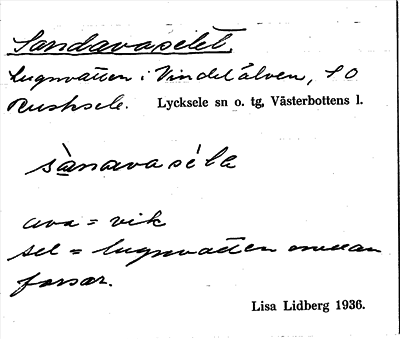 Sandavaselet.
Lugnvatten i Vindelälven, SO
Rusksele. Lycksele sn o. tg, Västerbottens l.
sànavasélɛ
ava = vik
sel = lugnvatten mellan
forsar.
Lisa Lidberg 1936.